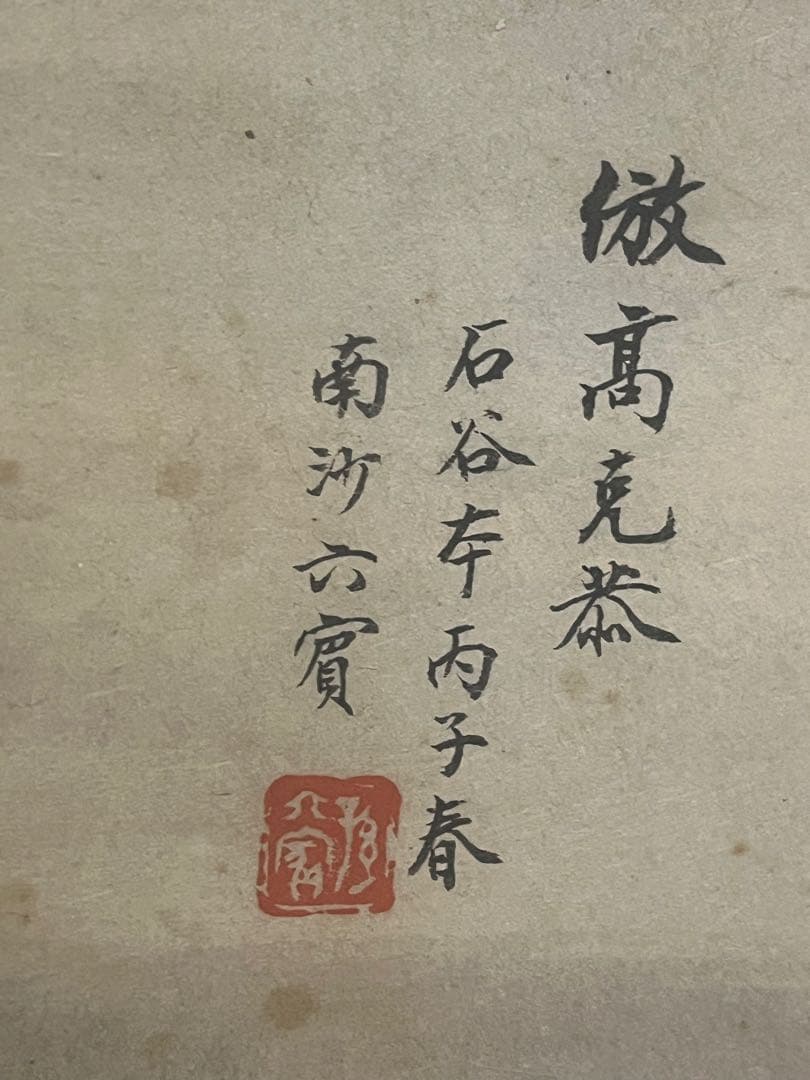 倣高克恭
石谷本丙子春
南沙六賓